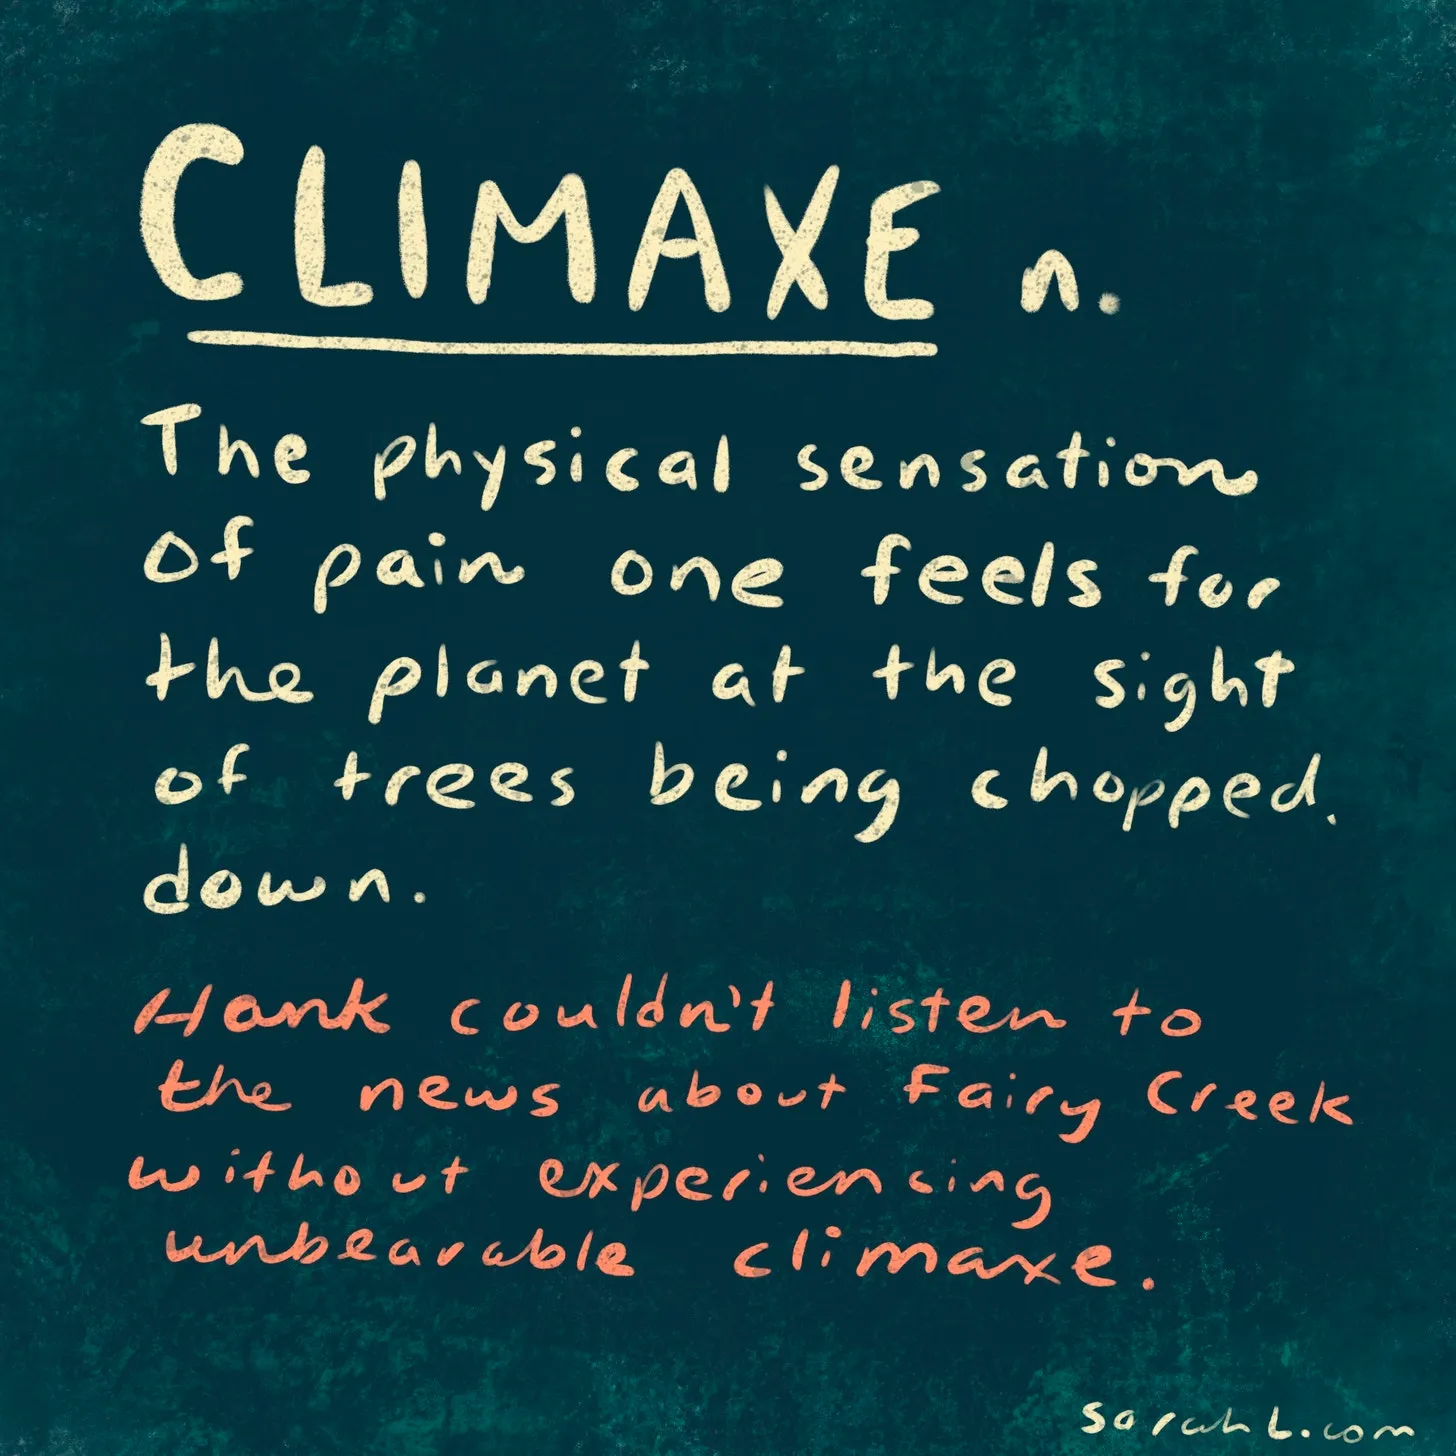 CLIMAXE n.
The physical sensation
Of pain one feels for
the planet at the sight
of trees being chopped.
down.
Hank couldn't listen to
the news about Fairy Creek
without experiencing
unbearable climaxe.
SarahL.com